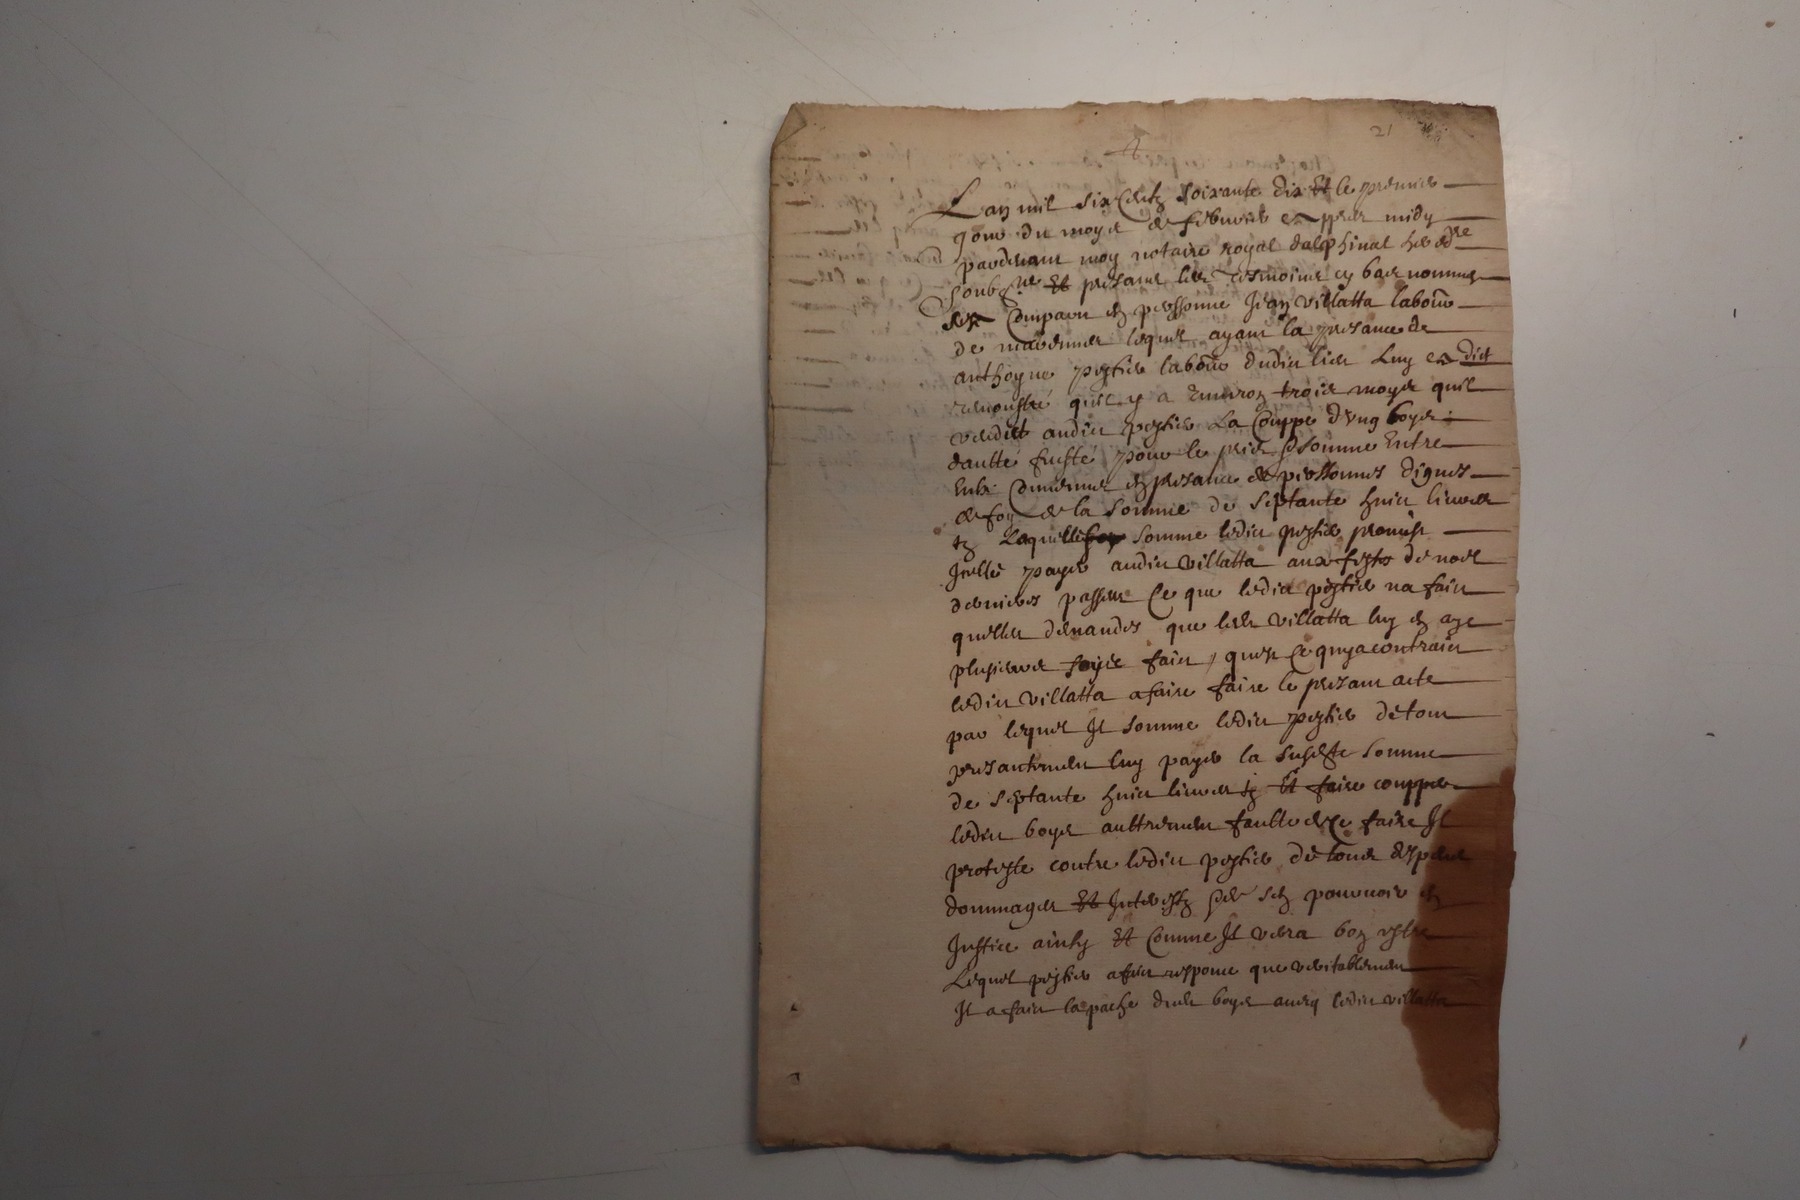 21
Lan mil six centz soixante dix et le premier
jour du moys de febvrier appres midy
pardevant moy notaire royal dalphinal hered.re
soubz.né et presans les tesmoins cy bas nommes
comparu en personne Jean Villatta labour
de lequel ayant la presance de
anthoyne pestier labour dudict lieu luy a dict
remonstré quil y a environ trois moys quil
vendist audict pestier la couppe dung boys
daulte fuste pour le pris somme entre
eulx convenue en presance de personnes dignes
de foy de la somme de septante huict livres
tz Laquelle somme ledict pestier promist
Icelle payer audict villatta aux festes de noel
dernieres passees Ce que ledict pestier na faict
quelles demandes que led villatta luy en aye
plusieurs foys faict, quest ce quy a contrainct
ledict villatta a faire faire le presant acte
par lequel Il somme ledict pestier de tout
presantement luy payer la susdicte somme
de septante huict livres tz Et faire coupper
ledict boys aultrement faulte de ce faire Il
proteste contre ledict pestier de tous despens
dommages Et Interestz de sen pourvoir en
Justice ainsy Et Comme Il verra bon estre
Lequel pestier a faict responce que veritablement
Il a faict la pache dud boys avecq ledict villatta